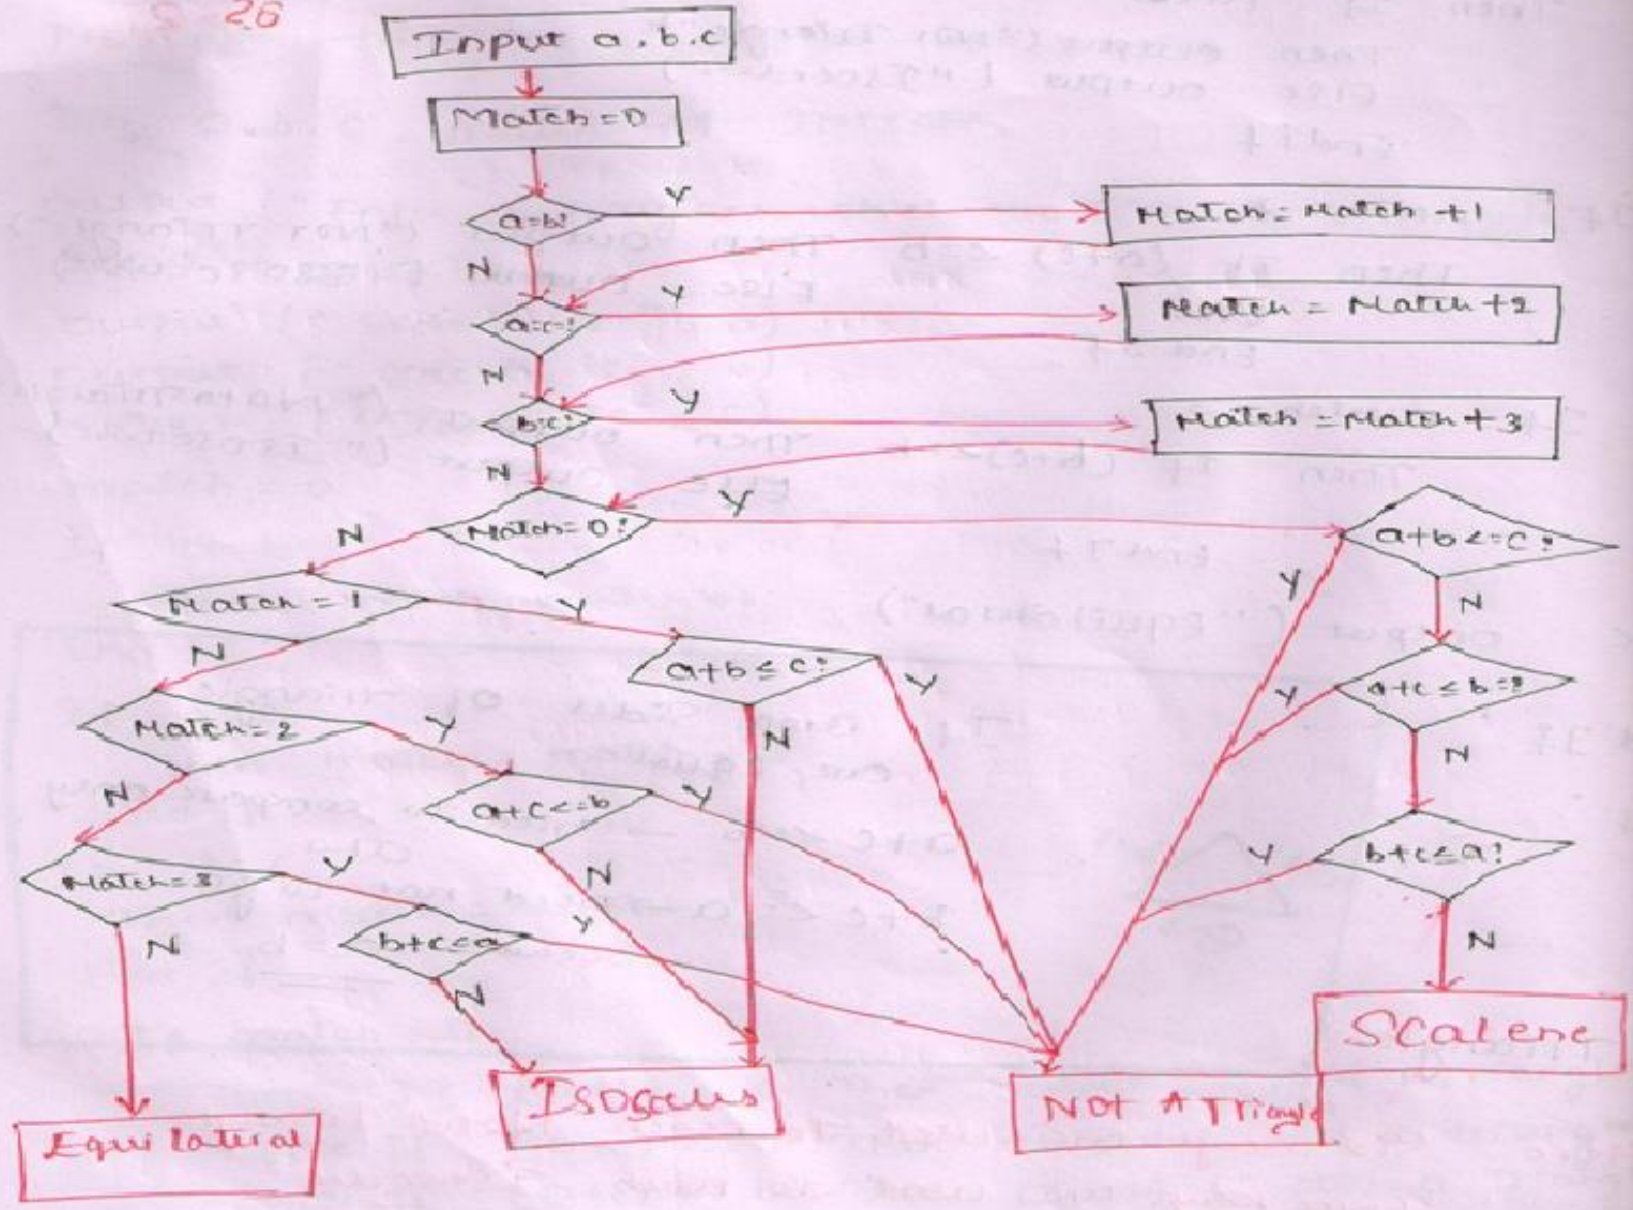 26
Input a.b.c
Match=0
a=b?
Y
Match=Match+1
N
a=c=?
Y
Match=Match+2
N
b=c?
Y
Match=Match+3
N
Match=0?
Y
a+b<=c?
N
Match=1
Y
a+b≤c?
Y
N
Y
N
a+c≤b=?
Y
N
Match=2
Y
a+c<=b
Y
N
N
b+c≤a?
Y
N
Match=3
Y
b+c<=a
Y
N
N
N
Scalene
Equilateral
NOt A Triangle